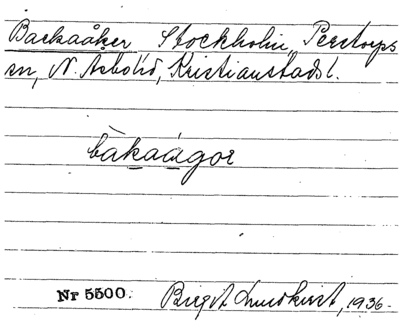 Backaåker Stockholm, Perstorps
sn, N. Åsbo hd, Kristianstads l.
bàkaágor
Nr 5500. Birgit Lundkvist, 1936.